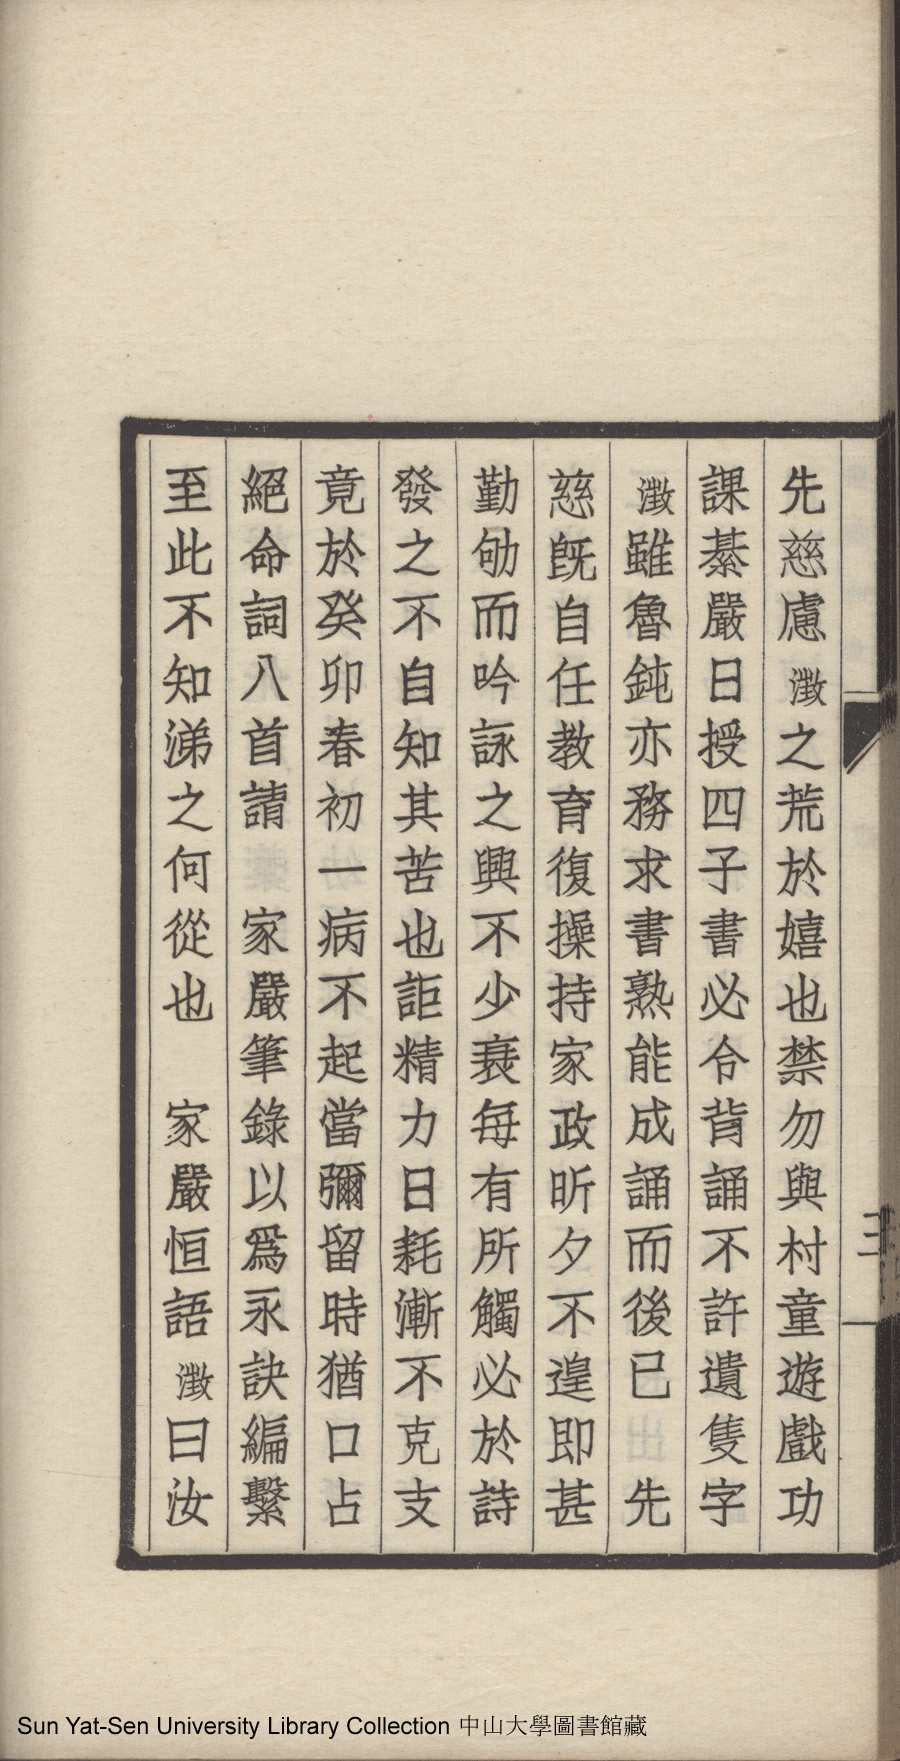 先慈慮澂之荒於嬉也禁勿與村童遊戲功
課綦嚴日授四子書必令背誦不許遺隻字
澂雖魯鈍亦務求書熟能成誦而後已　先
慈旣自任教育復操持家政昕夕不遑即甚
勤劬而吟詠之興不少衰每有所觸必於詩
發之不自知其苦也詎精力日耗漸不克支
竟於癸卯春初一病不起當彌留時猶口占
絕命詞八首請　家嚴筆錄以爲永訣編繫
至此不知涕之何從也　家嚴恒語澂曰汝
三
Sun Yat-Sen University Library Collection 中山大學圖書館藏